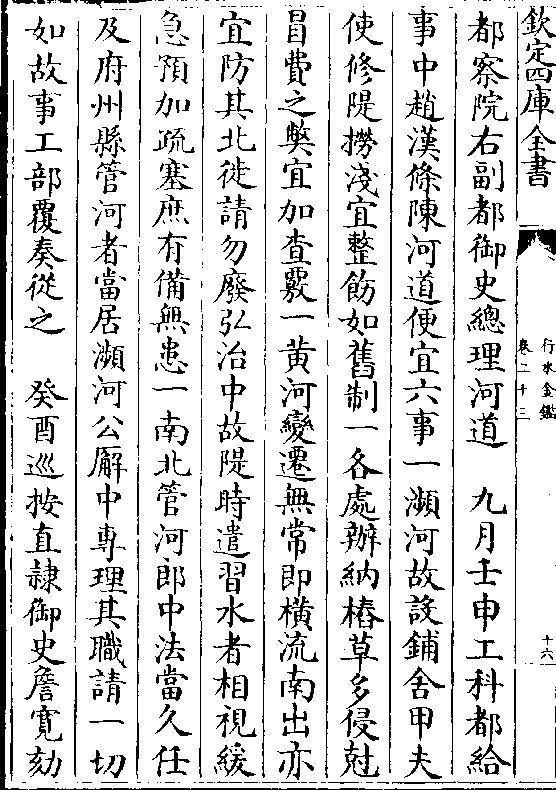 欽定四庫全書
行水金鑑
卷二十三
十六
都察院右副都御史總理河道　九月壬申工科都給
事中趙漢條陳河道便宜六事一瀕河故設鋪舍甲夫
使修隄撈淺宜整飭如舊制一各處辦納樁草多侵尅
冒費之獘宜加查覈一黃河變遷無常即橫流南出亦
宜防其北徙請勿廢弘治中故隄時遣習水者相視緩
急預加疏塞庶有備無患一南北管河郎中法當久任
及府州縣管河者當居瀕河公廨中專理其職請一切
如故事工部覆奏從之　癸酉巡按直隷御史詹寬劾